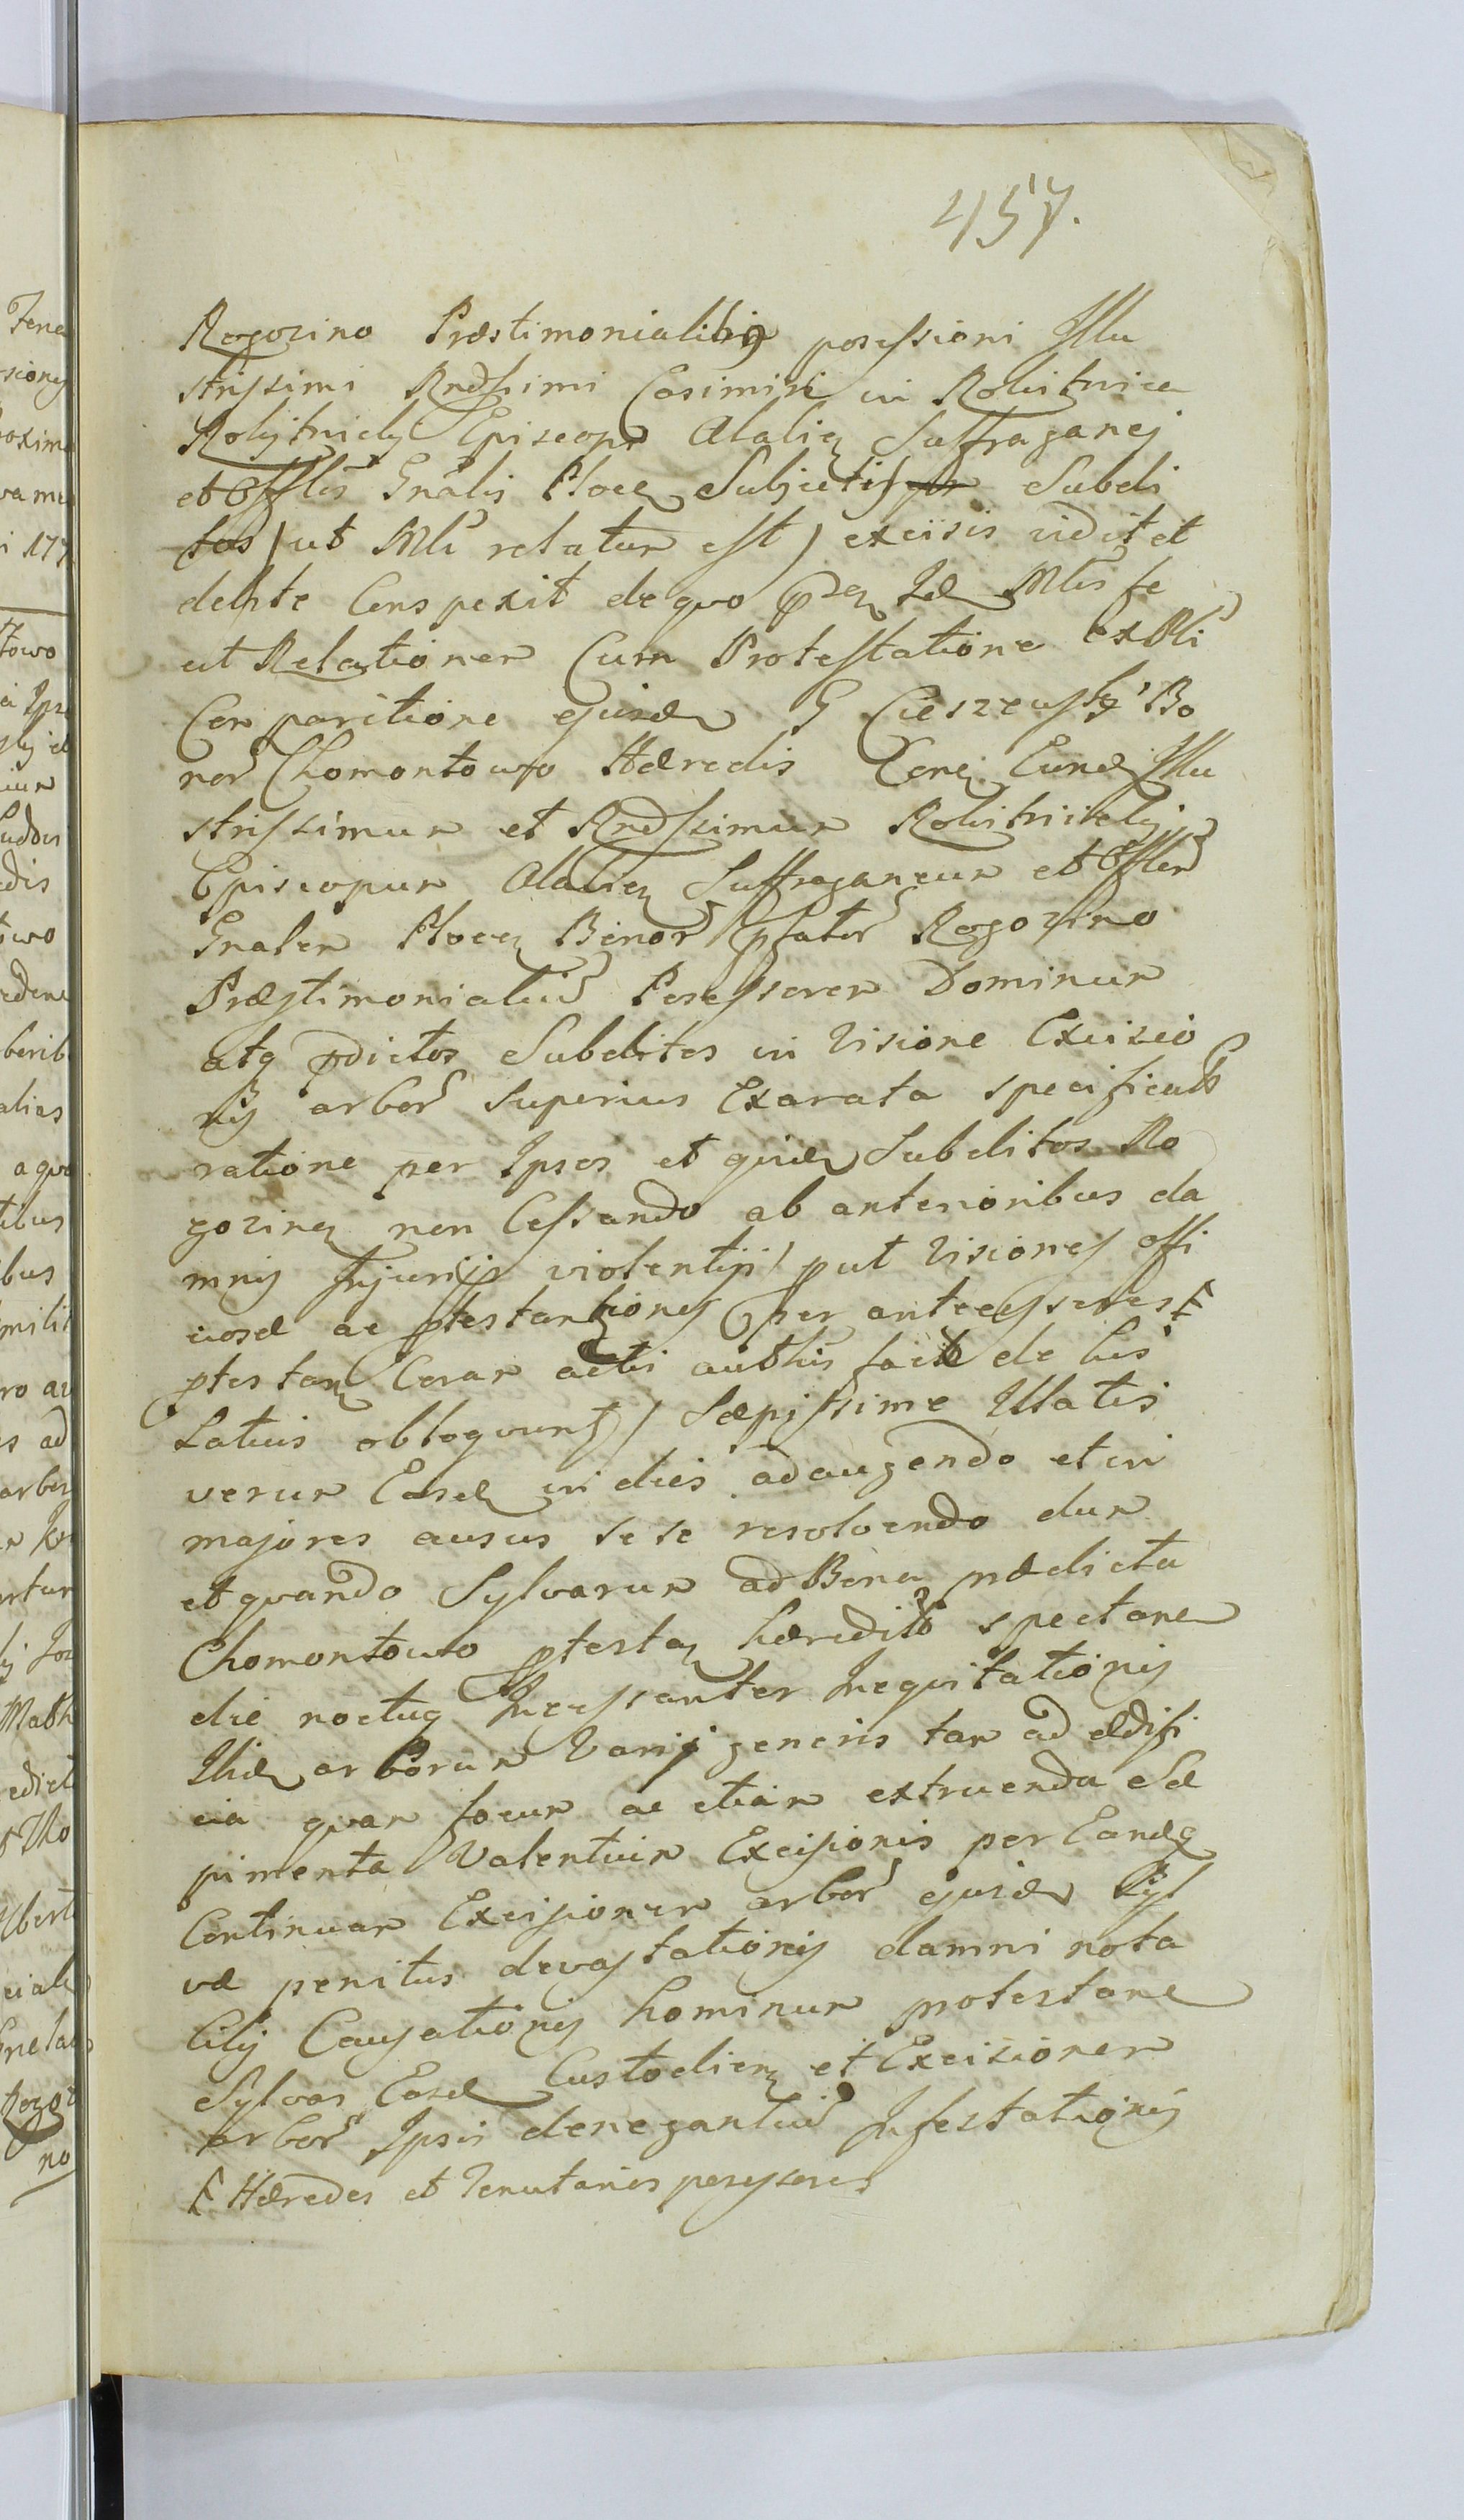 457.
Rogozino Præstimonialibq possessioni Illu
strissimi Rndssimi Casimiri in Rokitnica
Rokijtnicky Episcopi Alalien Suffraganej
et Offlis Gnalis Plocen Subjectis Subdi
tos (ut Mli relatum est) excisis vidit et
debite Conspexit de quo pren Idem Mlis fe
cit Relationem Cum Protestatione ex Pli
Comparitione ejusdem G Cieszewsky Bo
nor Chomontowo Hæredis Cora Eund Illu
strissimum et Rndssimum Rokitnicky
Episcopum Alalien Suffraganeum et Offlem
Gnalem Plocen Bonor pfator Rogozino
Præstimonialiu Possessorem Dominum
atq pdictos Subditos in Visione Excisio
nis arbor Superius Exarata specificatos
ratione per Ipsos et quidem Subditos Ro
gozinen non Cessando ab anterioribus da
mnis Injurijs violentijs (put Visiones offi
iosæ ac ptestantiones per antecessores F
ptestan Coram actis authis factæ de his
Latius obloquunt) Sæpissime Illatis
verum Easdem in dies adaugendo et in
majores ausus sese resolvendo dum
et quando Sylvarum ad Bona prædicta
Chomontowo ptestan hæredito spectanem
die noctuq Incessanter Inequitationis
Ibidem arborum Varij generis tam ad ædifi
cia quam focum ac etiam extruenda Sæ
pimenta Valentium Excisionis per Eandq
Continuam Excisionem arbor ejusdem Syl
væ penitus devastationis damni nota
bilis Causationis hominum protestane
Sylvas Easdem Custodien et Excisionem
arbor Ipsis denegantiu Infestationis
F Hæredes et Tenutarios possessores